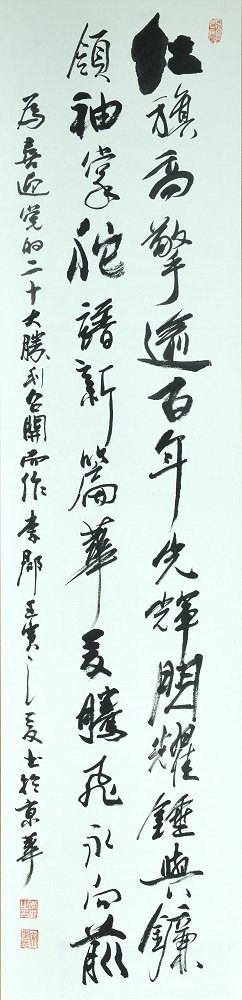 红旗高擎逾百年光輝閃耀錘與鐮
領袖掌舵譜新篇華夏騰飛永向前
為喜迎党的二十大勝利召開而作李郡壬寅之夏书於京華